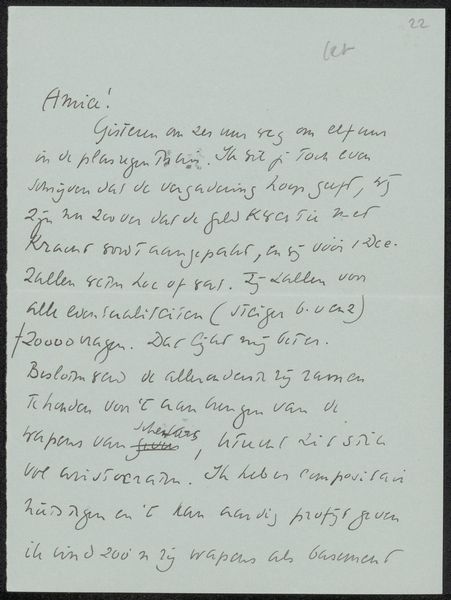 22
Amice!
Gisteren om zes uur weg om elf uur
in de plasregen thuis. Ik wil je toch even
schrijven dat de vergadering hoop geeft, wij
zijn nu zoover dat de geld kwestie met
kracht wordt aangepakt, en wij vóór 1 Dec.
zullen weten hoe of wat. Zij zullen voor
alle eventualiteiten (steiger b. v. enz)
20000 vragen. Dat lijkt mij beter.
Besloten werd de allerondersten rij ramen
te houden voor 't aanbrengen van de
wapens van schenkers,
vol aristocraten. Ik heb er compositai
en 't kan aardig profijt geven
ik vind zoo'n rij wapens als basement